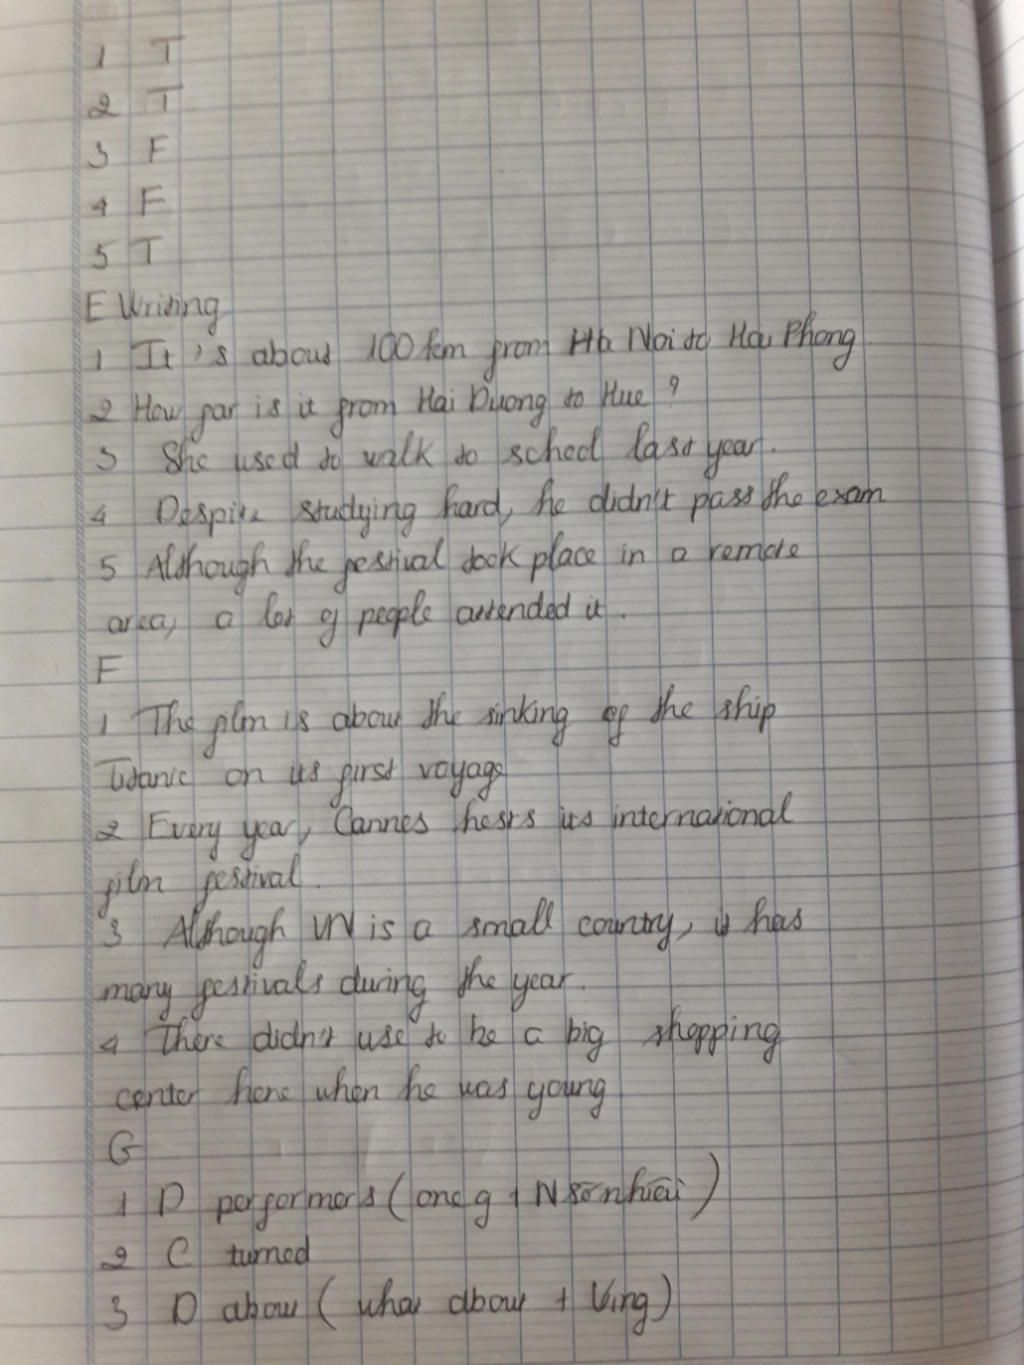 1 T
2 T
3 F
4 F
5 T
E Writing
1 It's about 100 km from Ha Noi to Hai Phong
2 How far is it from Hai Duong to Hue ?
3 She used to walk to school last year.
4 Despite studying hard, he didn't pass the exam
5 Although the festival took place in a remote
area, a lot of people attended it.
F
1 The film is about the sinking of the ship
Titanic on its first voyage
2 Every year, Cannes hosts its international
film festival.
3 Although VN is a small country, it has
many festivals during the year.
4 There didn't use to be a big shopping
center here when he was young
G
1 D performers (one of + N số nhiều)
2 C turned
3 D about (what about + Ving)